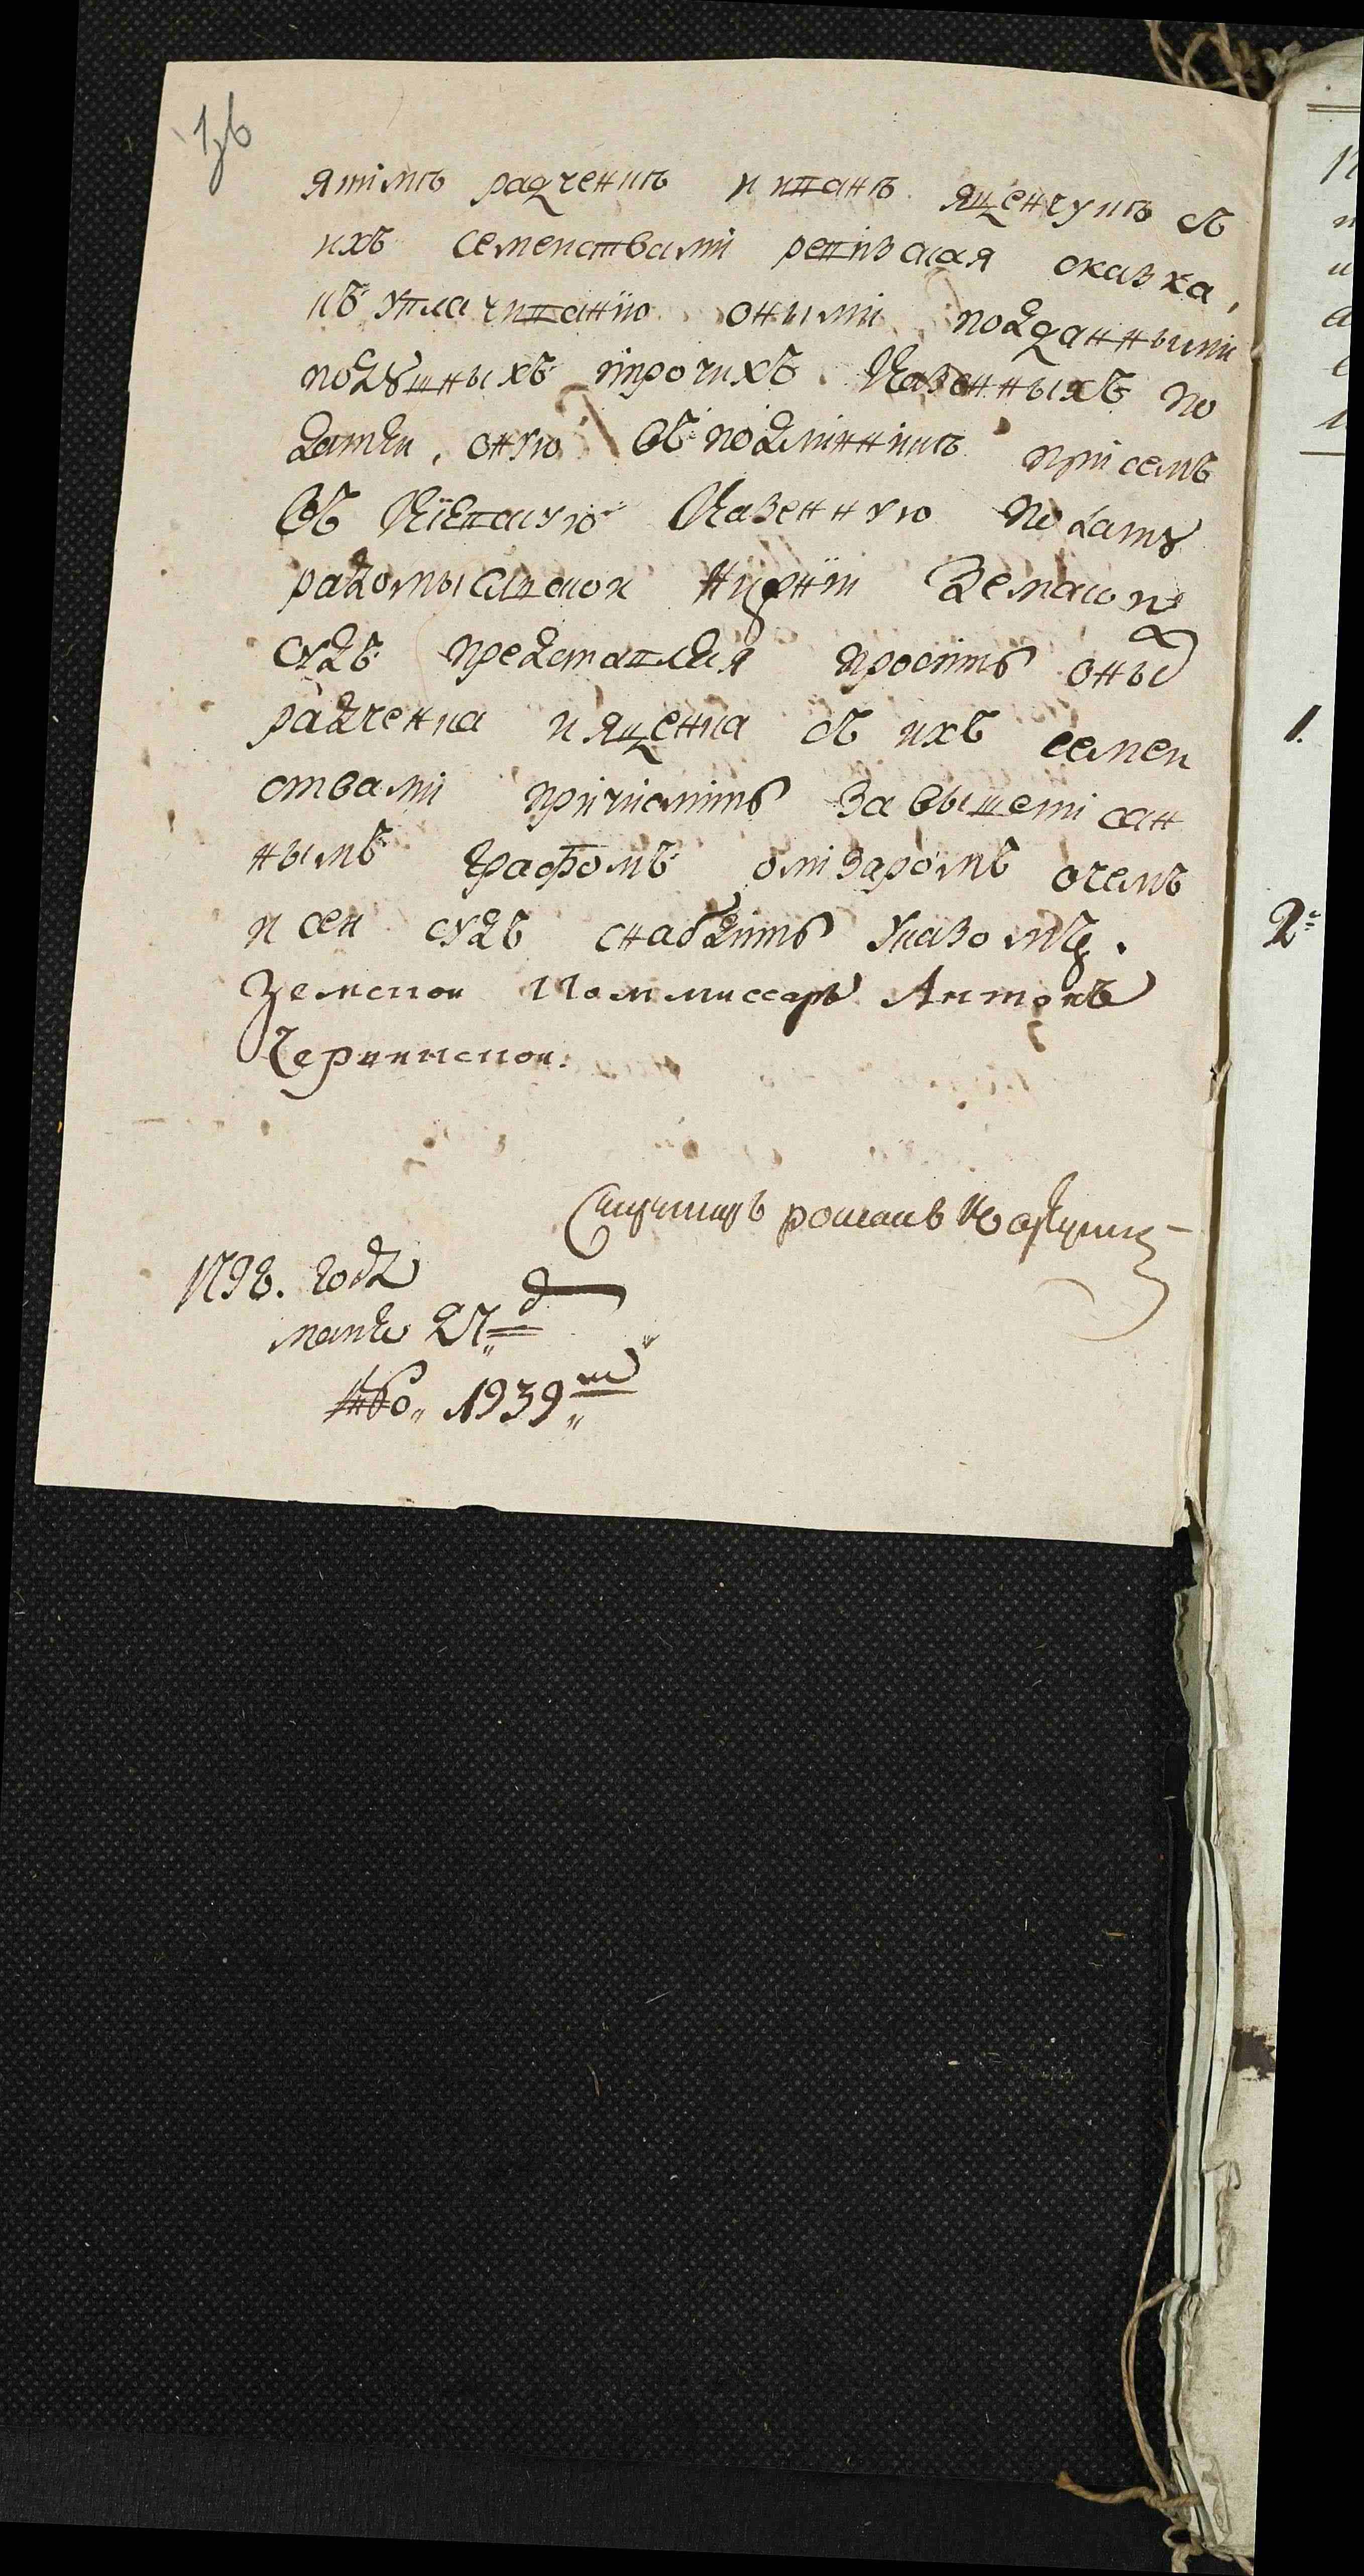 ятімъ радченкъ и иванъ ященкукъ съ
ихъ семействамі ревізская сказка,
къ уплачиванію онымі подданнымі
подушныхъ ипрочихъ казенныхъ по
датей, оную въ подлінникъ присемъ
въ Кіевскую казенную полату
радомысльской нижній земской
судъ представляя просітъ оны
радченка и ященка съ ихъ семей
ствамі причислить за вышепісан
нымъ графомъ олізаромъ очемъ
и сей судъ снабдить указомъ.
Земской Коммиссаръ Антонъ
Секритаръ романъ
1798. года
маия 27 д
№ 1939
1.
2